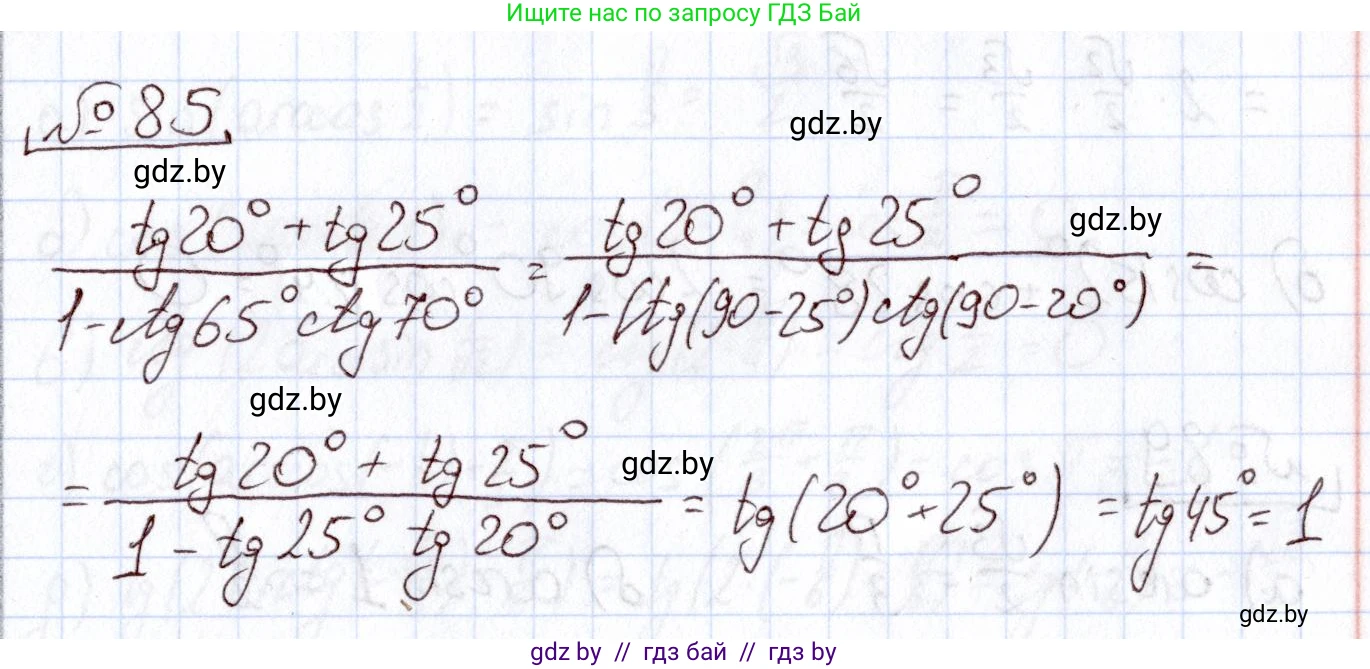 Ищите нас по запросу ГДЗ Бай
№ 85
gdz.by
gdz.by
(tg 20° + tg 25°) / (1 - ctg 65° ctg 70°) = (tg 20° + tg 25°) / (1 - ctg(90 - 25°) ctg(90 - 20°)) =
gdz.by
gdz.by
= (tg 20° + tg 25°) / (1 - tg 25° tg 20°) = tg(20° + 25°) = tg 45° = 1
gdz.by
gdz.by
gdz.by // гдз бай // гдз by